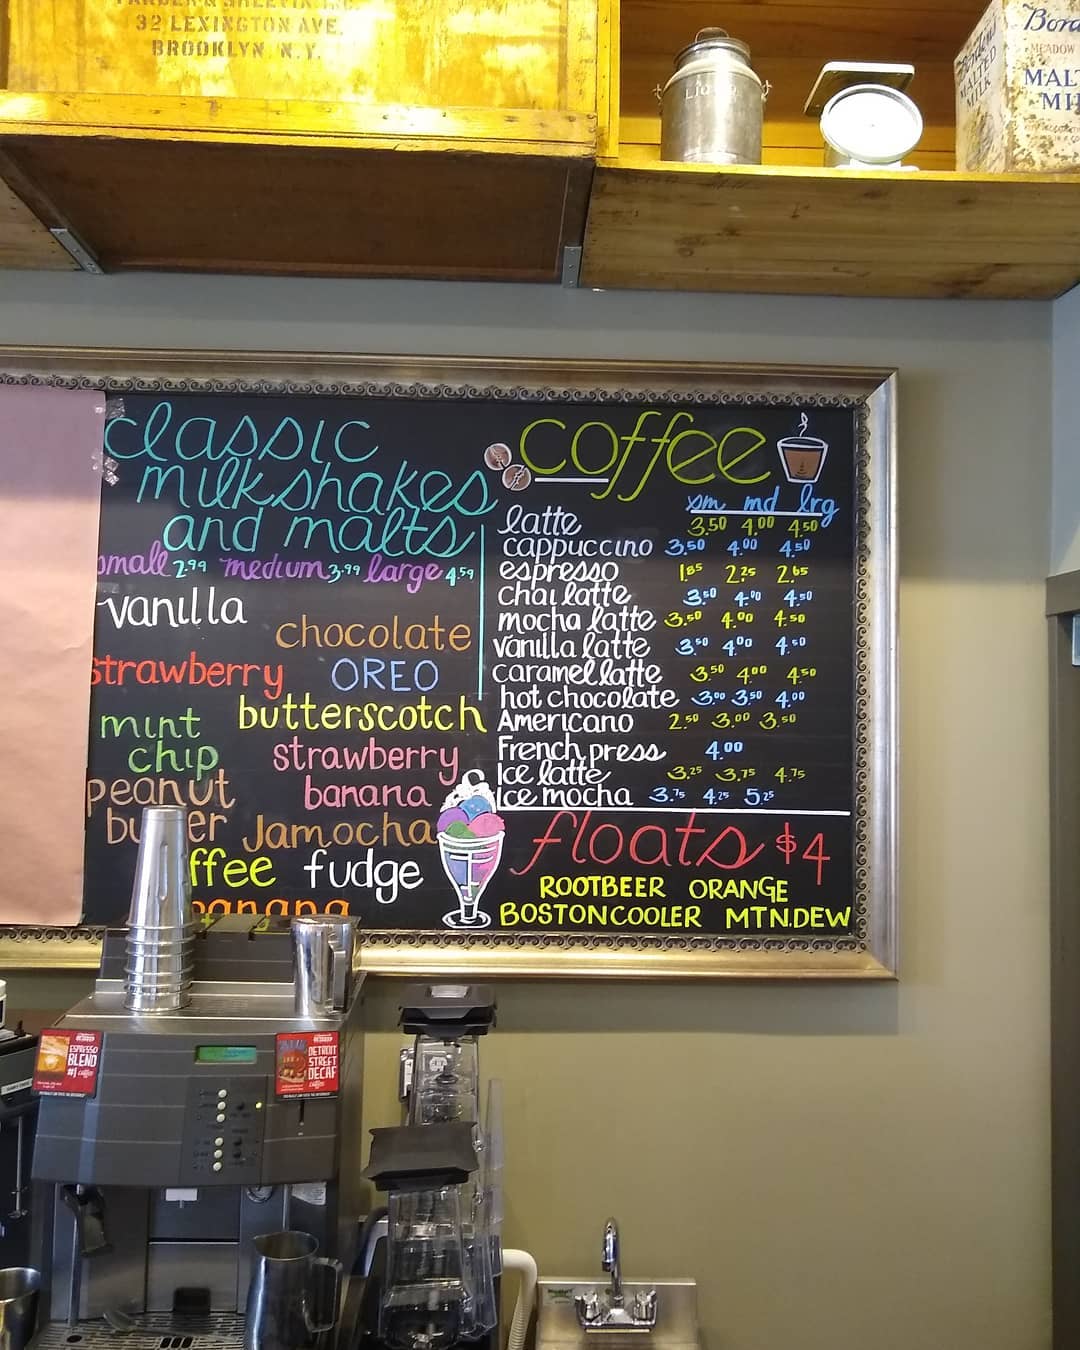 32 LEXINGTON AVE.
BROOKLYN, N.Y.
LIQUID
MALTED
MILK
MEADOW
classic
milkshakes
and malts
small 2.99 medium 3.99 large 4.59
vanilla
chocolate
strawberry OREO
mint
chip
butterscotch
strawberry
banana
peanut
Jamocha
fudge
banana
coffee
sm md lrg
latte 3.50 4.00 4.50
cappuccino 3.50 4.00 4.50
espresso 1.85 2.25 2.65
chai latte 3.50 4.00 4.50
mocha latte 3.50 4.00 4.50
vanilla latte 3.50 4.00 4.50
caramel latte 3.50 4.00 4.50
hot chocolate 3.00 3.50 4.00
Americano 2.50 3.00 3.50
French press 4.00
Ice latte 3.25 3.75 4.75
Ice mocha 3.75 4.25 5.25
floats $4
ROOTBEER ORANGE
BOSTON COOLER MTN.DEW
ESPRESSO
BLEND
#1 coffee
DETROIT
STREET
DECAF
coffee